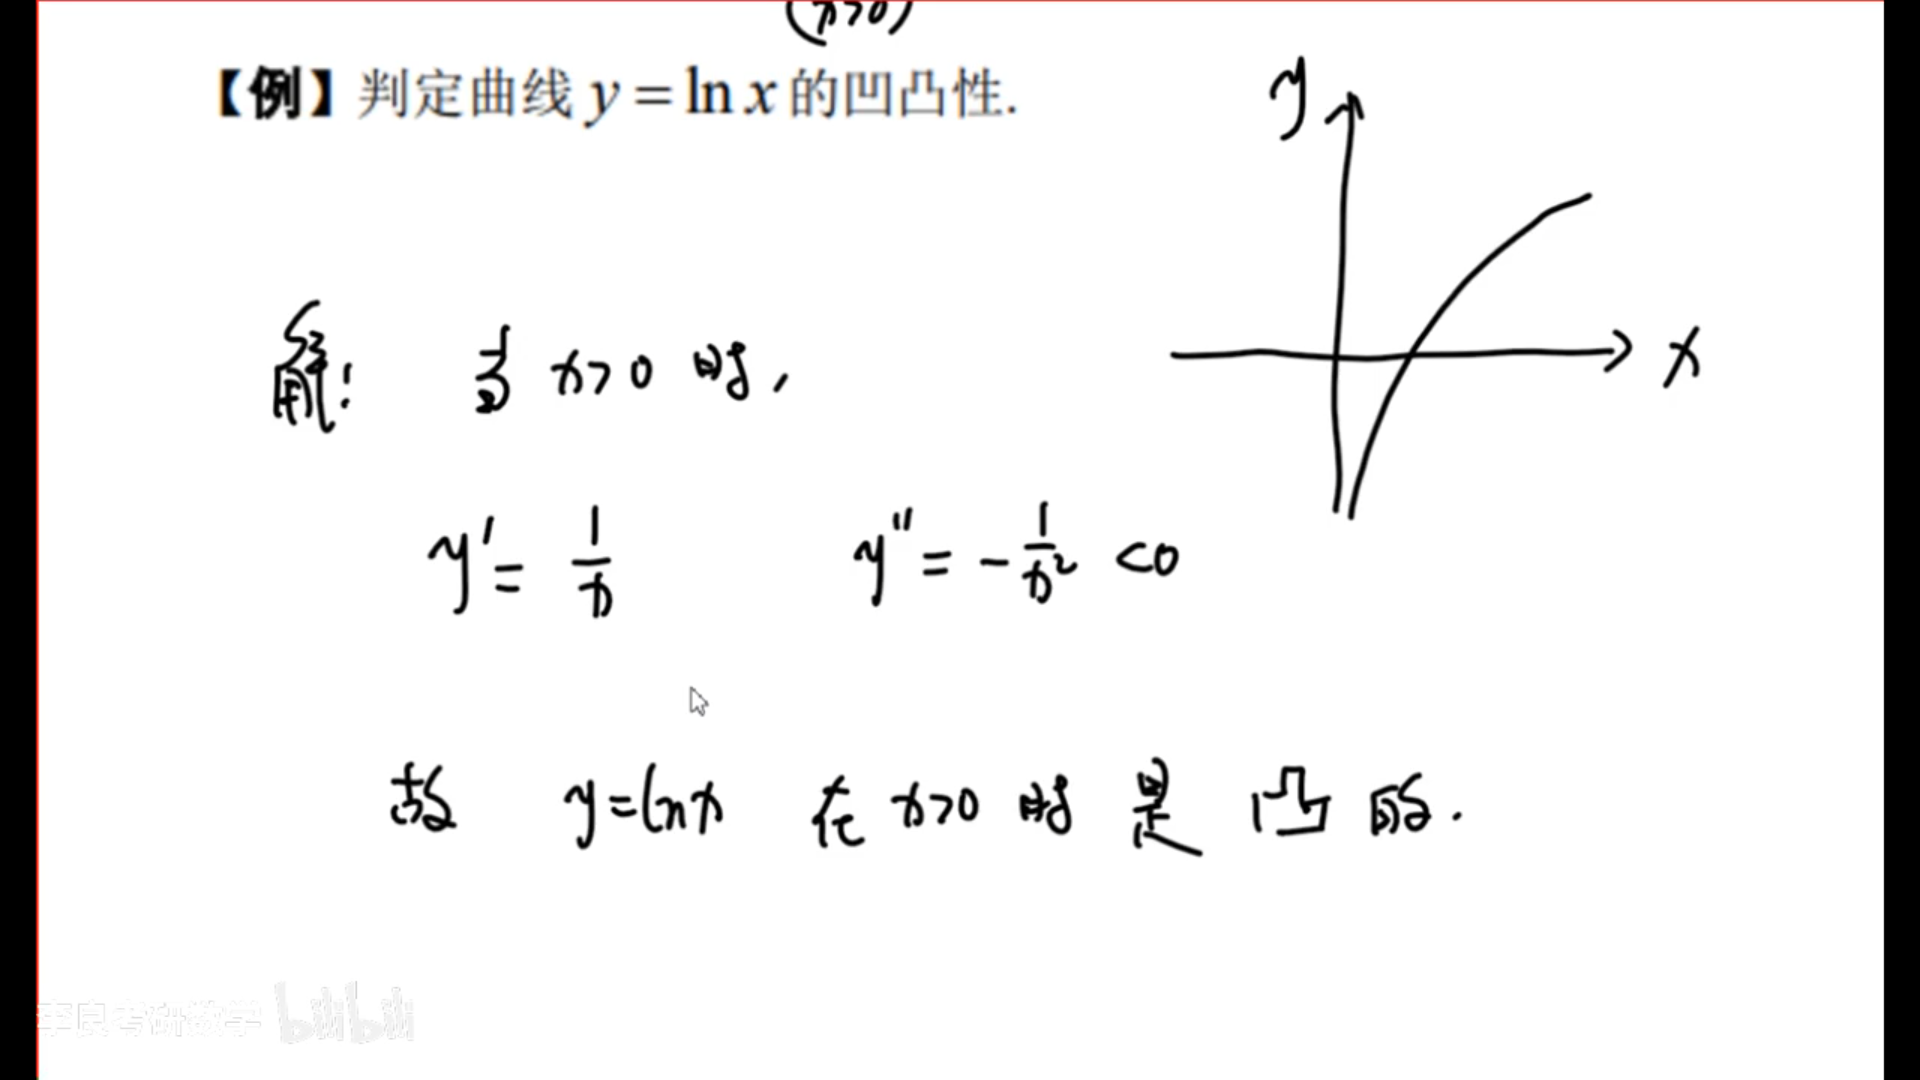 (x>0)
【例】判定曲线 y = ln x 的凹凸性.
y
x
解: 当 x>0 时,
y' = 1/x  y'' = -1/x² <0
故 y=lnx 在 x>0 时 是 凸 的.
李良考研数学 bilibili